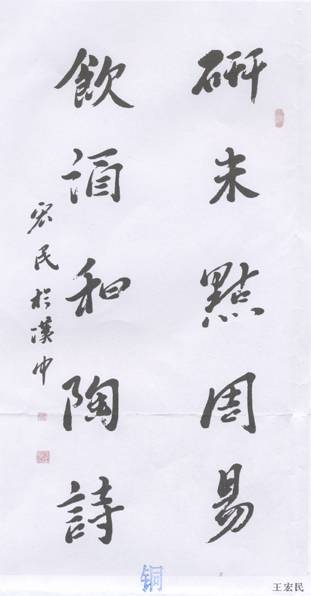 研朱點周易
飲酒和陶詩
宏民於漢中
铜
王宏民